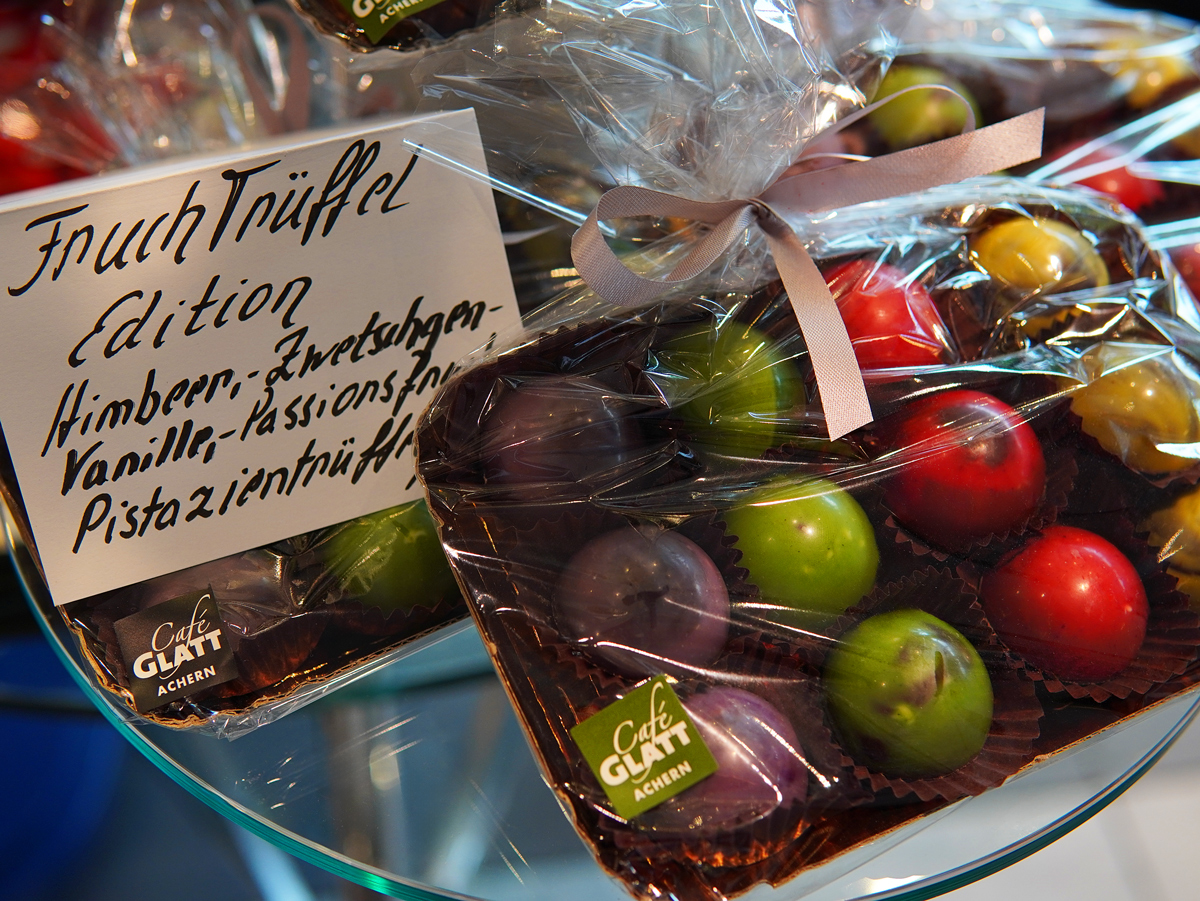 FruchTrüffel
Edition
Himbeer,-Zwetschgen-
Vanille,-Passionsfru
Pistazientrüff
Café
GLATT
ACHERN
Café
GLATT
ACHERN
ACHERN